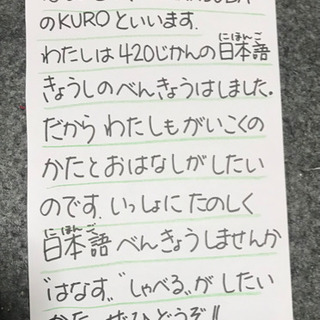 のKUROといいます.
わたしは420じかんの日本語
にほんご
きょうしのべんきょうはしました.
だから わたしもがいこくの
かたとおはなしがしたい
のです. いっしょに たのしく
にほんご
日本語べんきょうしませんか
"はなす", "しゃべる"がしたい
かた ぜひどうぞ!!